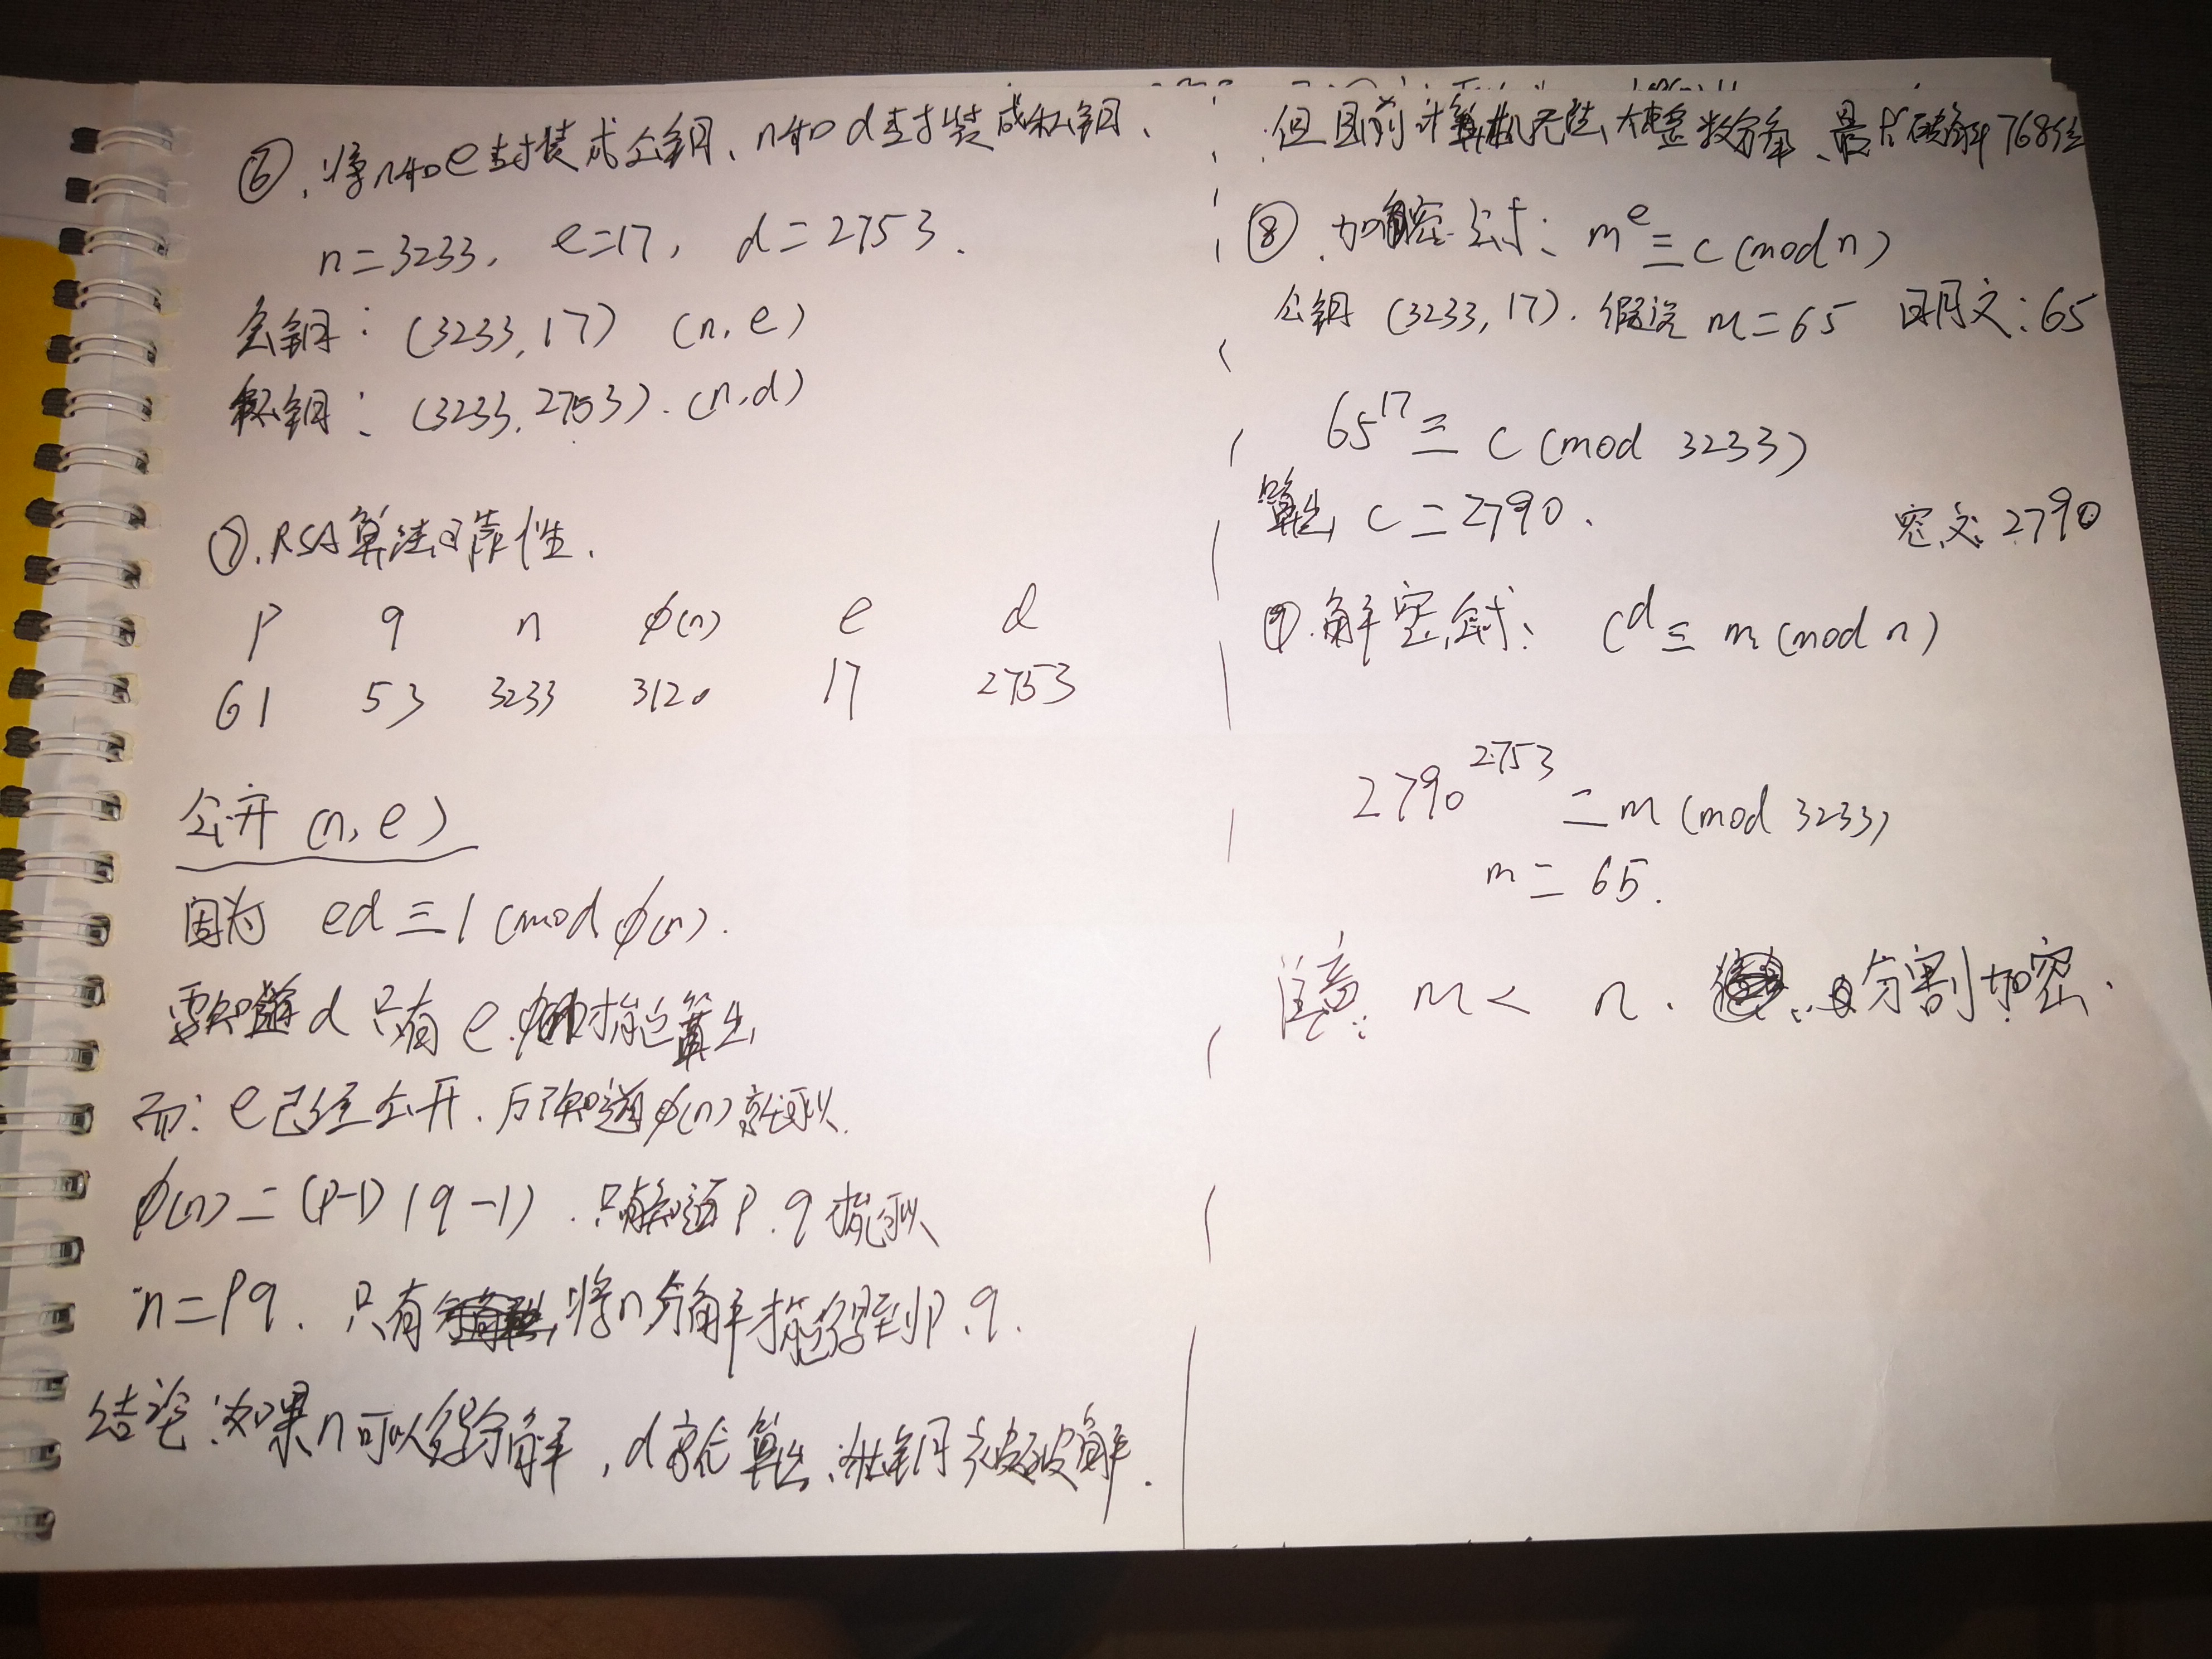 ⑥、将n和e封装成公钥、n和d封装成私钥、
n=3233, e=17, d=2753.
公钥: (3233,17) (n,e)
私钥: (3233,2753). (n,d)
⑦. RSA算法可靠性.
p q n φ(n) e d
61 53 3233 3120 17 2753
公开 (n,e)
因为 ed≡1 (mod φ(n).
要知道d 只有 e. 才能算出
而: e已经公开. 知道φ(n)就可以.
φ(n)=(p-1)(q-1). 只有知道p.q 才可以
n=pq. 只有 将n分解才能得到p.q.
结论: 如果n可以分解, d就 算出, 私钥 被破解.
但目前计算机无法大整数分解、最大破解768位
⑧. 加密公式: m^e≡c (mod n)
公钥 (3233,17). 假设 m=65 明文: 65
65^17≡c (mod 3233)
算出 c=2790. 密文: 2790
⑨. 解密公式: c^d≡m (mod n)
2790^2753=m (mod 3233)
m=65.
注意: m< n. 分割加密.